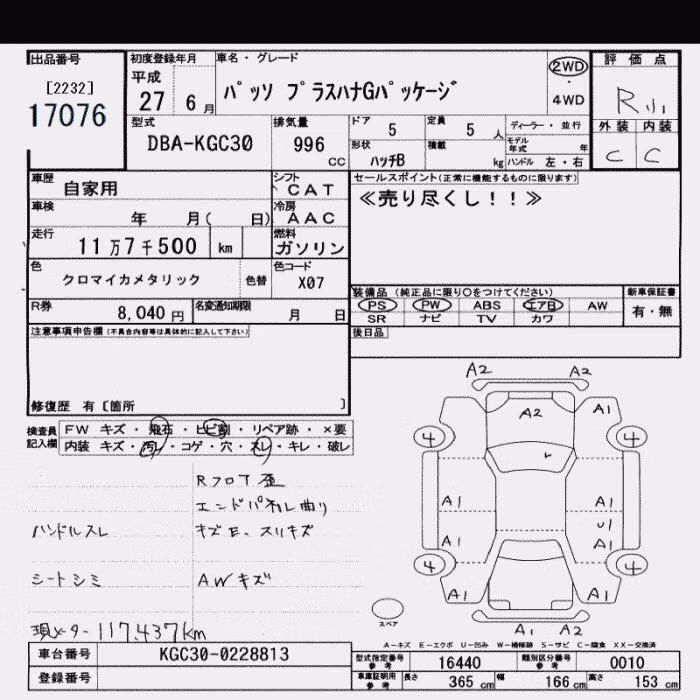 出品番号
[2232]
17076
初度登録年月
平成
27 6月
車名・グレード
パッソ プラスハナGパッケージ
2WD
・
4WD
評価点
R小
外装 内装
C C
型式
DBA-KGC30
排気量
996
CC
ドア
5
定員
5 人
形状
ハッチB
積載
kg
ディーラー・並行
モデル年式 年
ハンドル 左・右
車歴
自家用
シフト
CAT
車検
年 月( 日)
冷房
AAC
走行
11万7千500 km
燃料
ガソリン
色
クロマイカメタリック
色替
色コード
X07
R券
8,040 円
名変通知期限
月 日
セールスポイント(正常に機能するものに限ります)
≪売り尽くし!!≫
装備品 (純正品に限り○をつけてください)
PS PW ABS エアB AW
SR ナビ TV カワ
新車保証書
有・無
後日品
注意事項申告欄(不具合内容等は具体的に記入して下さい)
修復歴 有〔箇所 〕
検査員
記入欄
FW キズ・飛石・ヒビ割・リペア跡・×要
内装 キズ・汚レ・コゲ・穴・スレ・キレ・破レ
Rフロア歪
エンドパネル曲り
ハンドルスレ
キズE、スリキズ
シートシミ
AWキズ
現メーター117,437km
A2 A2
A2 A1
4 4
A1 A1
U1
A1 A1
4 4
A1 A1
A1 A2
スペア
A-キズ E-エクボ U-凹み W-補修跡 S-サビ C-腐食 XX-交換済
車台番号
KGC30-0228813
登録番号
型式指定番号
参考
16440
類別区分番号
参考
0010
車庫証明用
参考
長さ 365 cm
幅 166 cm
高さ 153 cm